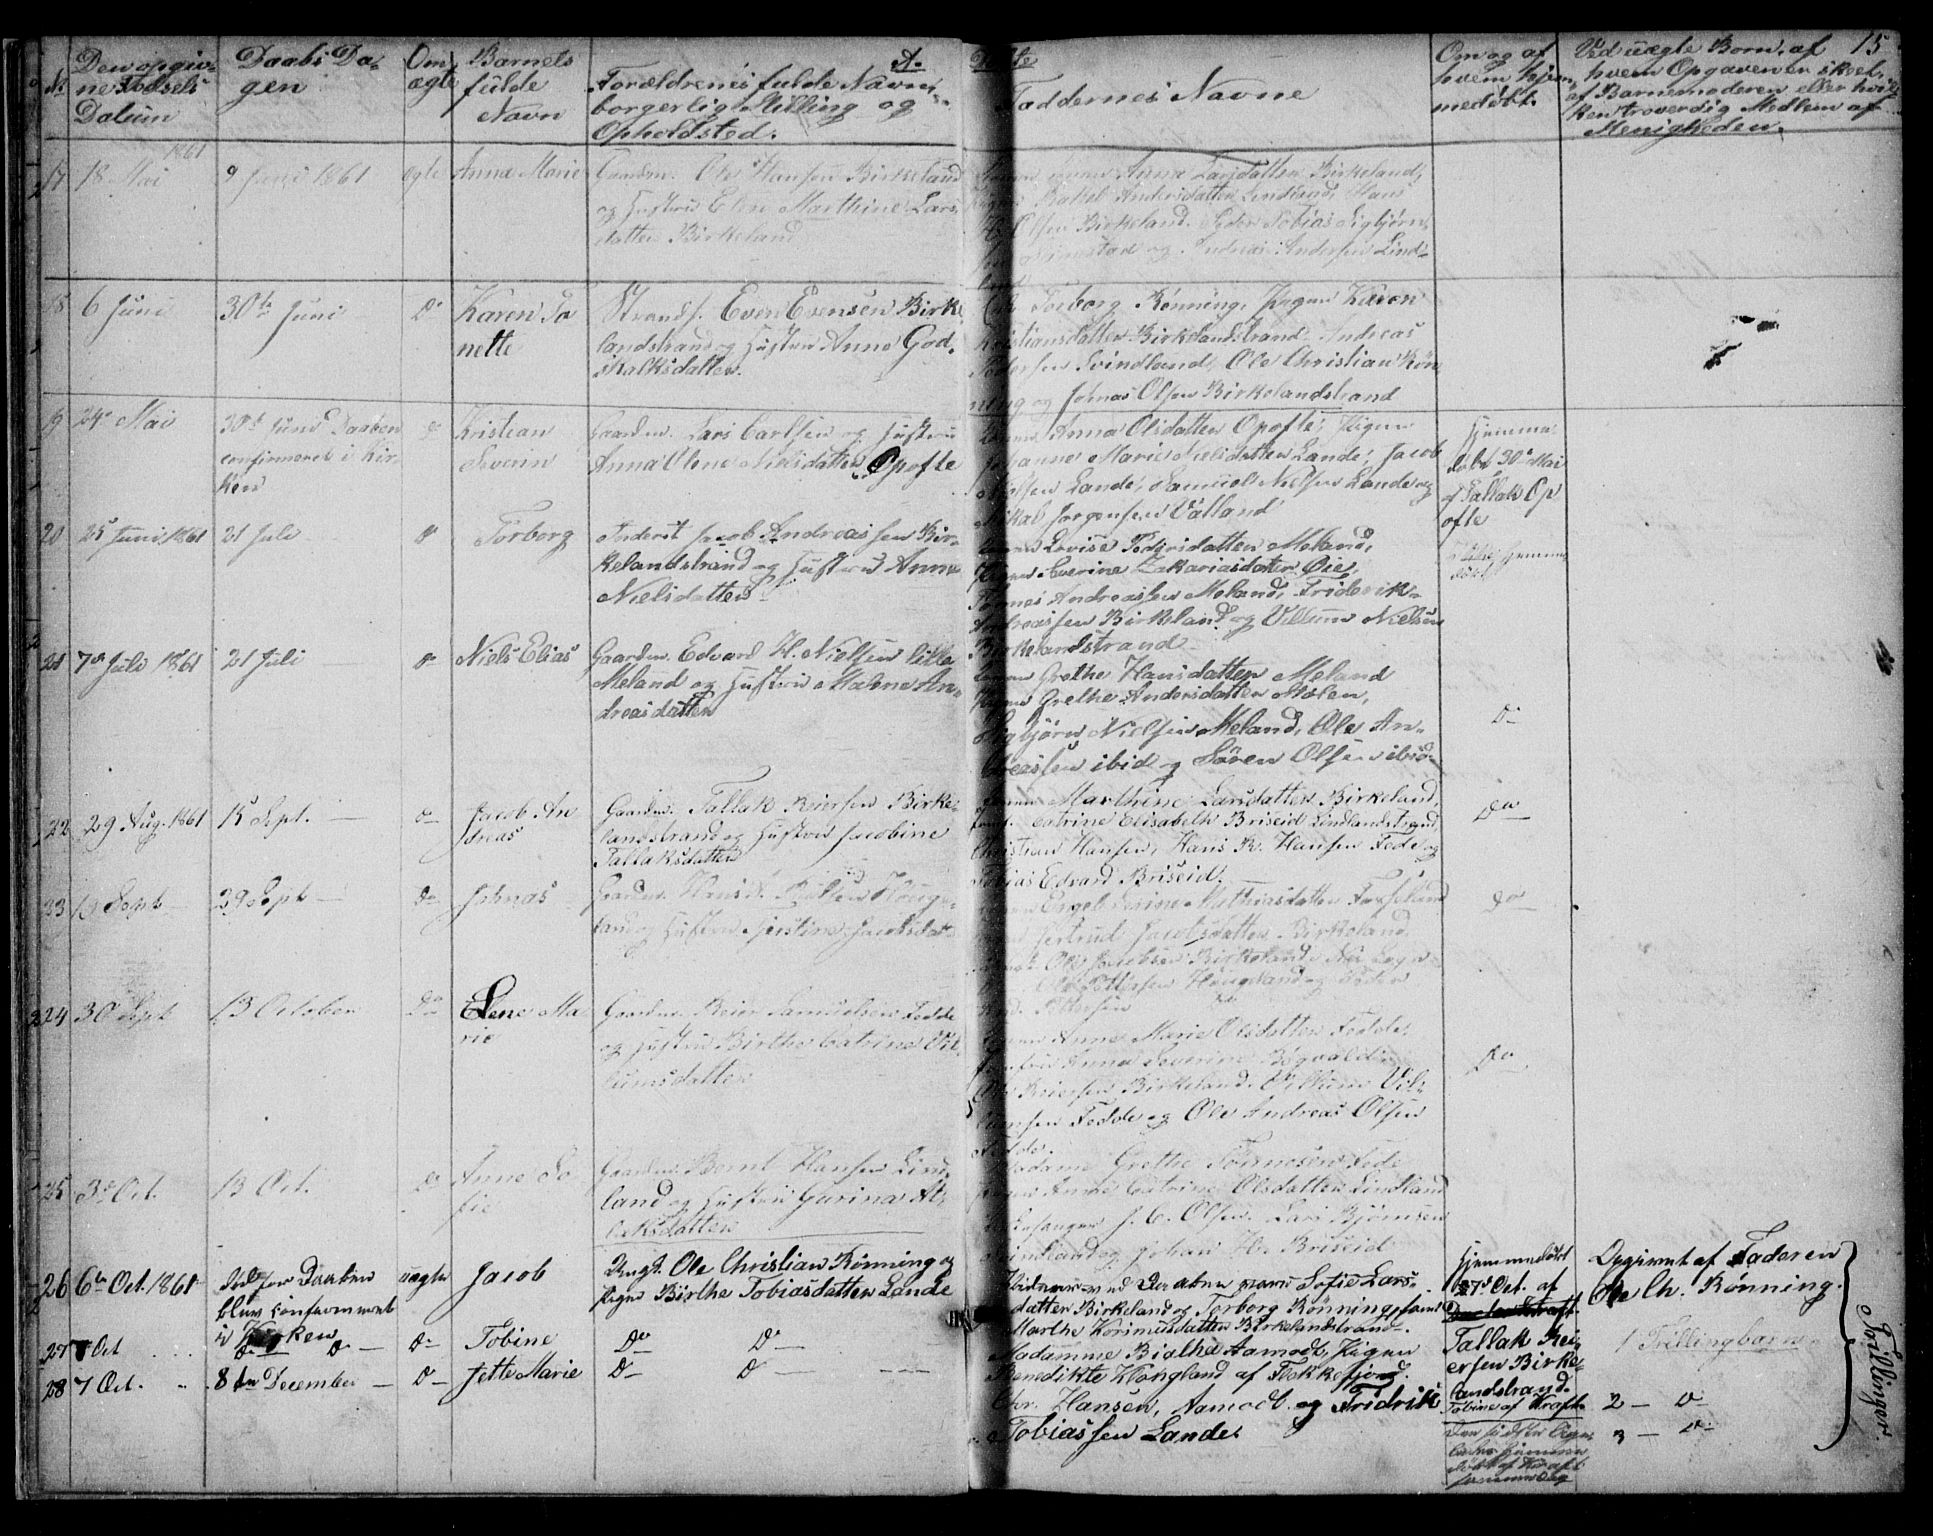 A. Døbte
15
No
Den opgiv-
ne Fødsels
Datum
Daabs Da-
gen
Om
ægte
Barnets
fulde
Navn
Forældrenes fulde Navne,
borgerlig Stilling og
Opholdsted.
Faddernes Navne
Om og af
hvem hjem-
medøbt.
Ved uægte Børn, af
hvem Opgaven er skeet,
af Barnemoderen eller hvil
ken troværdig Medlem af
Menigheden.
17 18 Mai 1861
9 Juni 1861
ægte
Anna Marie
Gaardm. Ole Hansen Birkeland
og Hustru Elen Marthine Lars
datter Birkeland
Anna Larsdatter Birkeland,
Rakel Andersdatter Lindland, Hans
Olsen Birkeland, Peder Tobias Sigbjørn
og Andreas Andersen Lind-
18 6 Juni
30te Juni
Do
Karen Ja
nette
Strands. Even Evensen Birke
landstrand og Hustru Anne God-
skalksdatter.
Torborg Rønning, Pigen Karen
Kristiansdatter Birkelandstrand, Andreas
Pedersen Svindland, Ole Christian Røn
ning og Johnas Olsen Birkelandstrand
19 24 Mai
30te Juni Daaben
confirmeret i Kir-
ken
do
Kristian
Severin
Gaardm. Lars Carlsen og Hustru
Anna Elene Nielsdatter Opofte
Anna Olsdatter Opofte, Pigen
Johanne Marie Nielsdatter Lande, Jacob
Nielsen Lande, Samuel Nielsen Lande og
Mikal Jørgensen Valland
Hjemme
døbt 30te Mai
af Tallak Op
ofte
20 25 Juni 1861
21 Juli
Do
Torborg
Inderst Jacob Andreassen Bir-
kelandstrand og Hustru Anne
Nielsdatter
Lovise Pedersdatter Meland,
Pigen Severine Zakariasdatter Øie,
Tønnes Andreassen Meland, Friderik
Andreassen Birkeland og Villum Nielsen
Birkelandstrand
Ikke hjemme
døbt
21 7de Juli 1861
21 Juli
do
Niels Elias
Gaardm. Edvard H. Nielsen lille
Meland og Hustru Malene An-
dreasdatter
Grethe Hansdatter Meland
Pigen Grethe Andersdatter Stølen,
Sigbjørn Nielsen Meland, Ole An-
dreassen ibid og Søren Olsen ibid
Do
22 29 Aug. 1861
15 Sept.
do
Jacob An
dreas
Gaardm. Tallak Reiersen Birke-
landstrand og Hustru Jacobine
Tallaksdatter
Marthine Larsdatter Birkeland,
Catrine Elisabeth Briseid Lindlandstrand,
Christian Hansen, Hans R. Hansen Fede og
Tobias Edvard Briseid.
Do
23 19 Sept
29 Sept
Do
Johnas
Gaardm. Houge-
land og Hustru Kjerstine Jacobsdat
Engel Serine Mathiasdatter
Gjertrud Jacobsdatter Birkeland
Ole Jacobsen Birkeland,
Pettersen Hougeland og Peder
Pettersen
Do
24 30 Sept
13 October
Do
Elene Ma
rie
Gaardm. Reier Samuelsen Fedde
og Hustru Birthe Catrine Vil
lumsdatter
Anne Marie Olsdatter Fedde,
Jomfru Anna Severine Røgvald
Ole Reiersen Birkeland, Villum Vil-
lumsen Fedde og Ole Andreas Olsen
Fedde.
Do
25 3de Oct.
13 Oct.
Do
Anne So
fie
Gaardm. Bernt Hansen Lind
land og Hustru Gurina At-
laksdatter
Madame Grethe Tønnesen Fede
Pigen Anne Catrine Olsdatter Lindland
Kirkesanger J. C. Olsen, Lars Bjørnsen
Lindland og Johan Hr. Briseid
26 6te Oct. 1861
Daaben
blev confirmeret
i Kirken
uægte
Jacob
Ungk. Ole Christian Rønning og
Pigen Birthe Tobiasdatter Lande
Vidner ved Daaben vare Sofie Lars-
datter Birkeland og Torborg Rønning, samt
Marthe Korimusdatter Birkelandstrand.
Hjemmedøbt
7de Oct. af
Tallak Rei-
ersen Birke-
landstrand.
Tobine af Kraft
Opgivet af Faderen
Ole Ch. Rønning.
27 7 Oct
Do
Do
Tobine
Do Do
Madamme Birthe Aamodt, Pigen
Benedikte Klongland af Flekkefjord.
1 Trillingbarn
28 7 Oct.
8de December
Do
Jette Marie
Do Do
Chr. Hansen, Aamodt og Fridrik
Tobiassen Lande.
2 — Do
3 — Do
Trillinger.
Den sidste
hjemme
døbt af Kraft
samme Dag